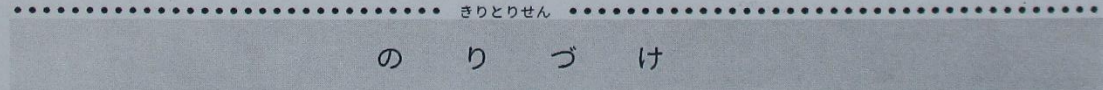 きりとりせん
のりづけ